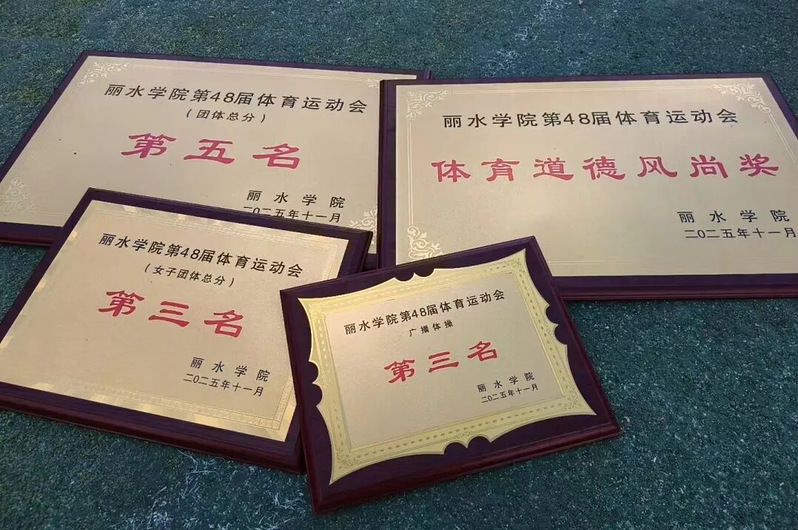 丽水学院第48届体育运动会
（团体总分）
第五名
丽水学院
二〇二五年十一月
丽水学院第48届体育运动会
体育道德风尚奖
丽水学院
二〇二五年十一月
丽水学院第48届体育运动会
（女子团体总分）
第三名
丽水学院
二〇二五年十一月
丽水学院第48届体育运动会
广播体操
第三名
丽水学院
二〇二五年十一月